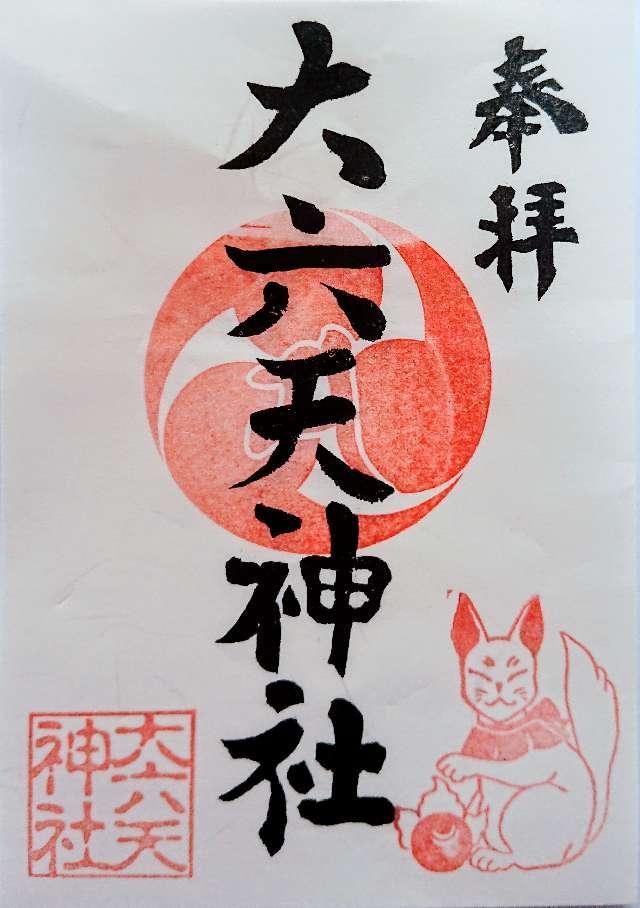 奉拝
大六天神社
大六天
神社